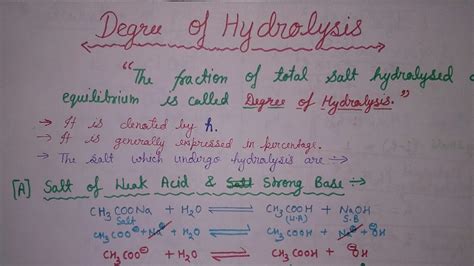 Degree of Hydrolysis
"The fraction of total salt hydrolysed
equilibrium is called Degree of Hydrolysis."
→ It is denoted by h.
→ It is generally expressed in percentage.
→ The salt which undergo hydrolysis are →
[A] Salt of Weak Acid & Strong Base →
CH₃COONa + H₂O ⇌ CH₃COOH + NaOH
Salt (W.A) S.B
CH₃COO⊖ + Na⊕ + H₂O ⇌ CH₃COOH + Na⊕ + ⊖OH
CH₃COO⊖ + H₂O ⇌ CH₃COOH + ⊖OH